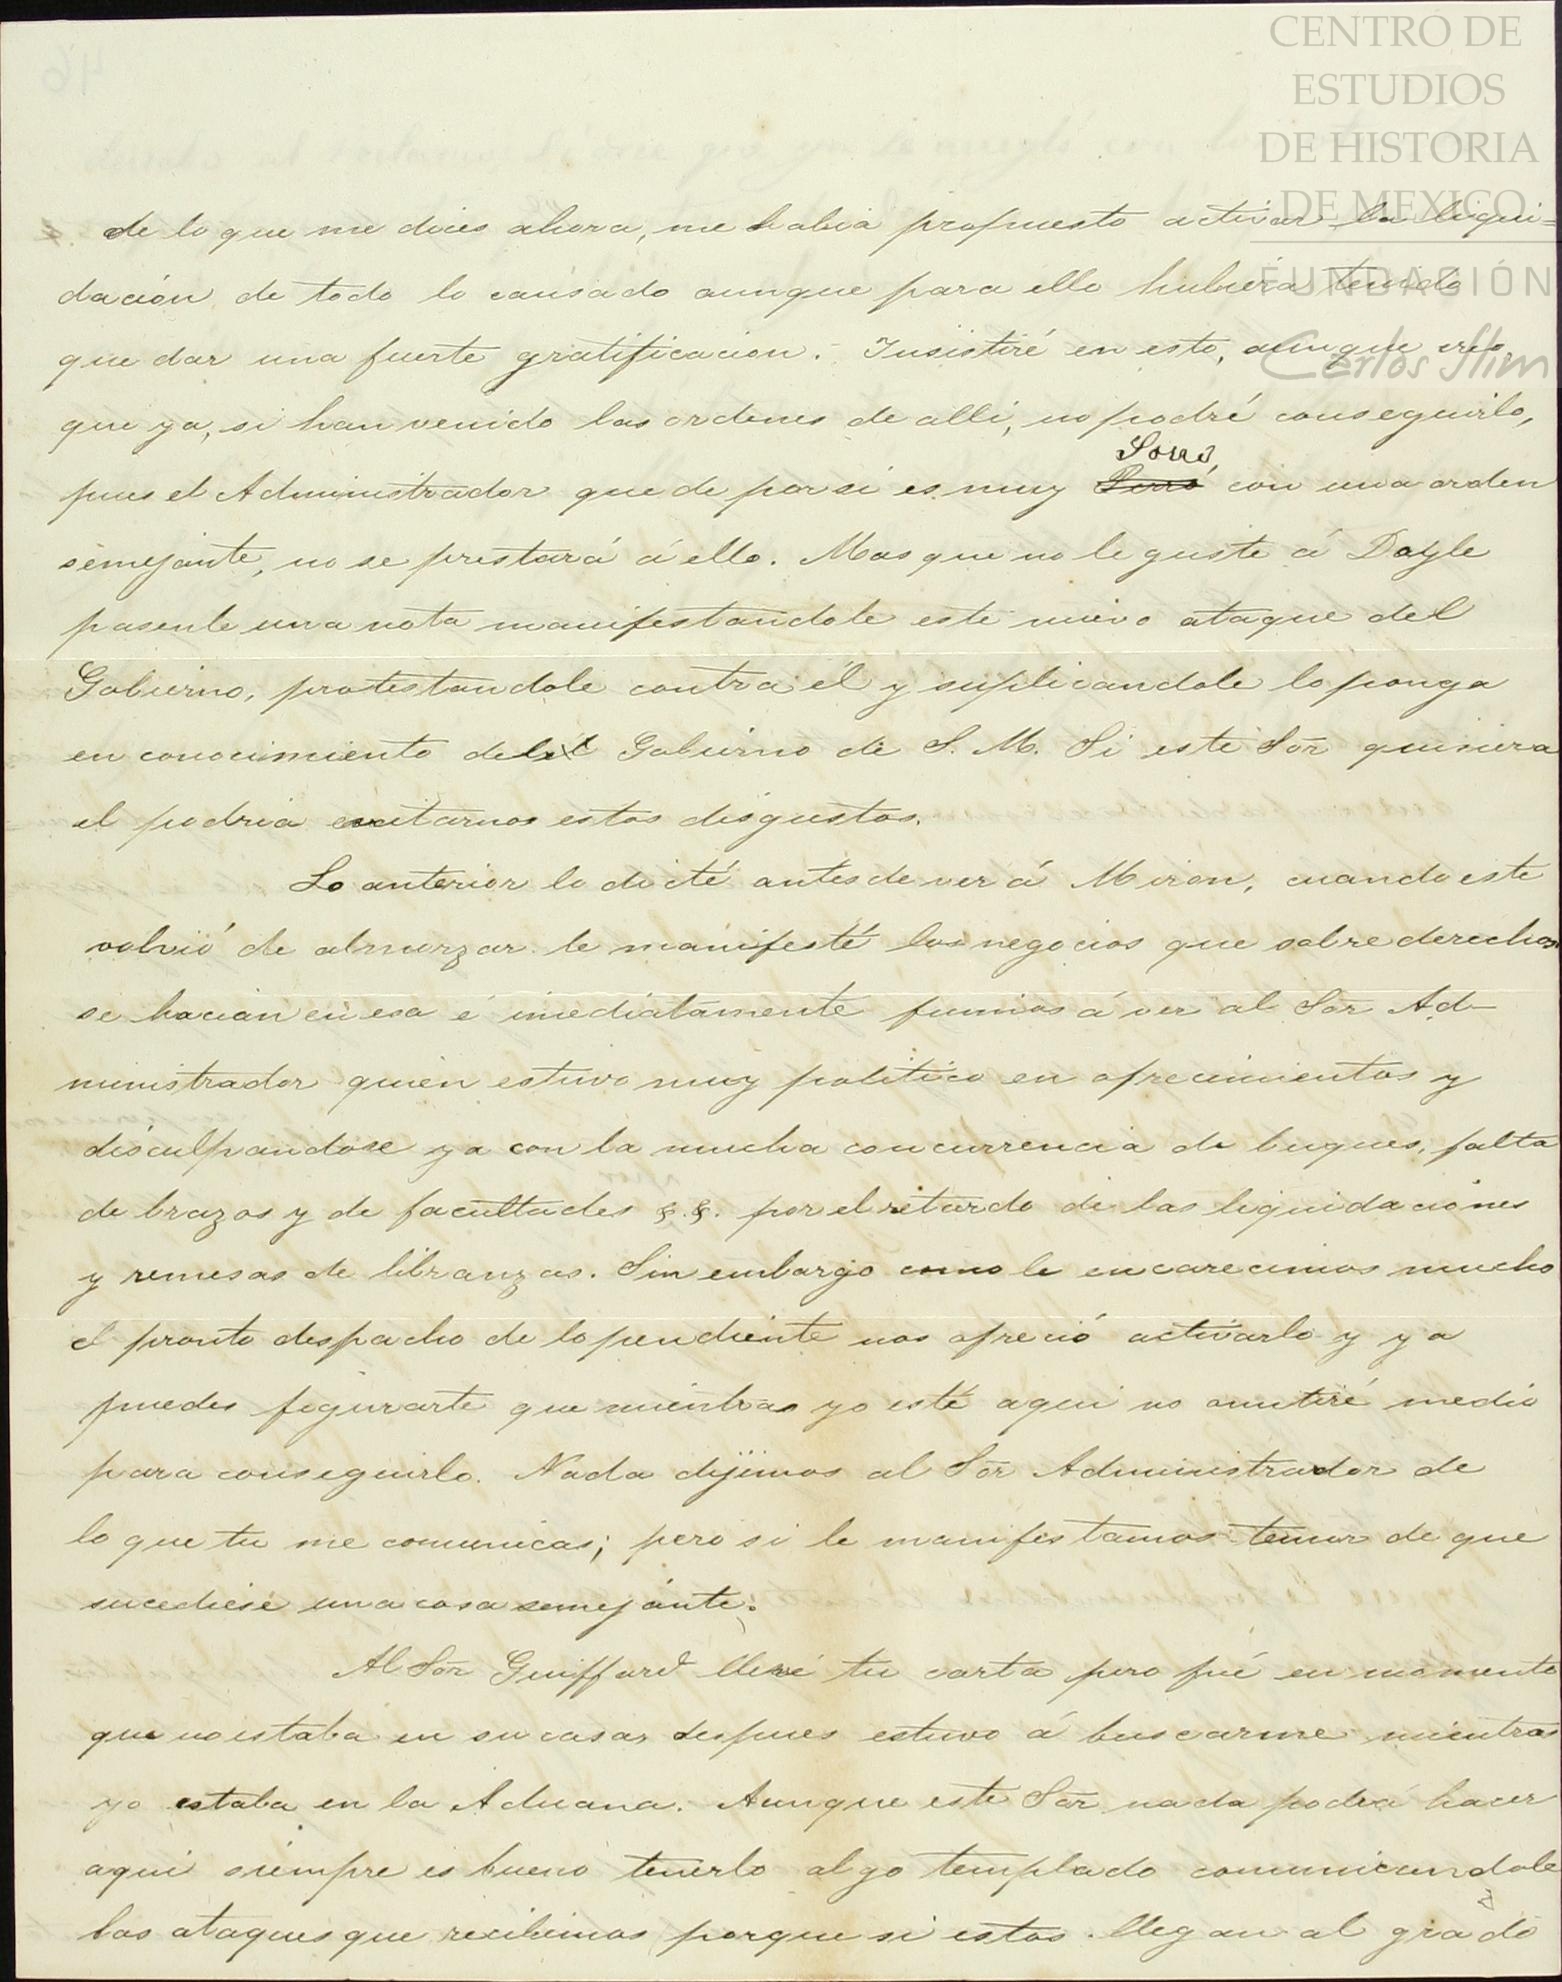 CENTRO DE
ESTUDIOS
DE HISTORIA
DE MEXICO
FUNDACIÓN
Carlos Slim
de lo que me dices ahora, me habia propuesto activar la liqui=
dación de todo lo causado aunque para ello hubiera tenido
que dar una fuerte gratificacion. Insistiré en esto, aunque creo
que ya, si han venido las ordenes de alli, no podré conseguirlo,
pues el Administrador que de por si es muy con una orden
semejante, no se prestará á ello. Mas que no le guste á Doyle
pasenle una nota manifestandole este nuevo ataque del
Gobierno, protestandole contra él y suplicandole lo ponga
en conocimiento del Gobierno de S. M. Si este Sor quisiera
el podria evitarnos estos disgustos.
Lo anterior lo dicté antes de ver á Miron, cuando este
volvió de almorzar le manifesté los negocios que sobre derechos
se hacian en esa é imediatamente fuimos á ver al Sor Ad-
ministrador quien estuvo muy politico en ofrecimientos y
disculpandose ya con la mucha concurrencia de buques, falta
de brazos y de facultades &. &. por el retardo de las liquidaciones
y remesas de libranzas. Sin embargo como le encarecimos mucho
el pronto despacho de lo pendiente nos ofreció activarlo y ya
puedes figurarte que mientras yo esté aqui no omitiré medio
para conseguirlo. Nada dijimos al Sor Administrador de
lo que tu me comunicas; pero si le manifestamos temor de que
sucediese una cosa semejante.
Al Sor Guifford llevé tu carta pero fué en momento
que no estaba en su casa, despues estuvo á buscarme mientras
yo estaba en la Aduana. Aunque este Sor nada podrá hacer
aqui siempre es bueno tenerlo algo templado comunicandole
los ataques que recibimos porque si estos llegan al grado